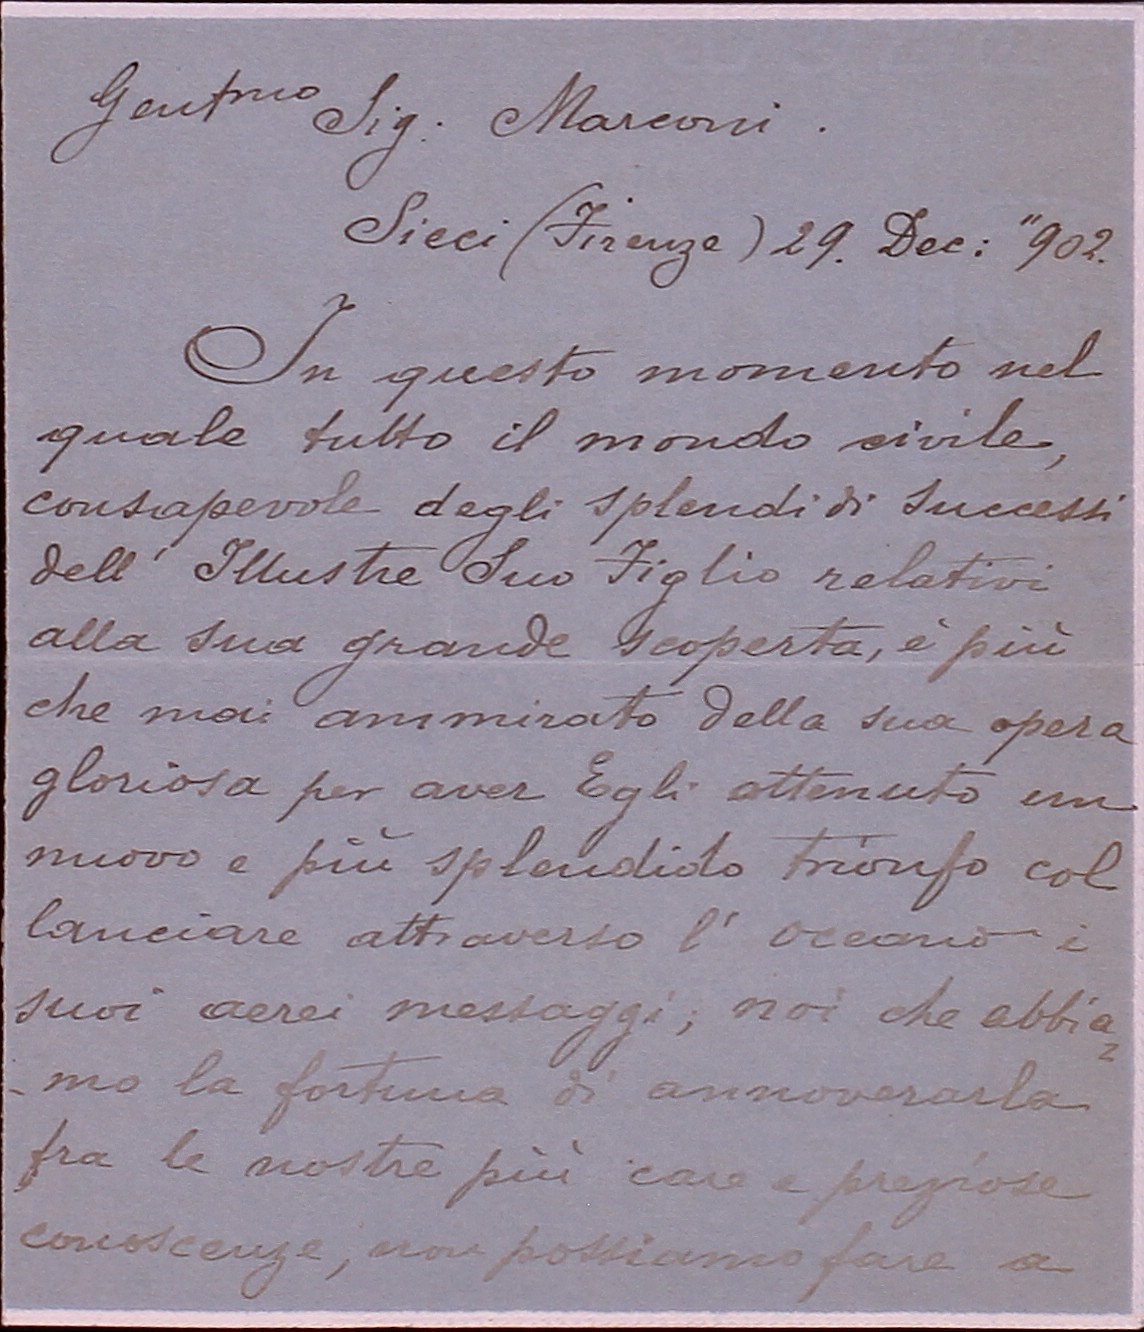 Gentmo Sig. Marconi.
Sieci (Firenze) 29. Dec: "902.
In questo momento nel
quale tutto il mondo civile,
consapevole degli splendidi successi
dell' Illustre Suo Figlio relativi
alla sua grande scoperta, è più
che mai ammirato della sua opera
gloriosa per aver Egli ottenuto un
nuovo e più splendido trionfo col
lanciare attraverso l' oceano i
suoi aerei messaggi; noi che abbia=
-mo la fortuna di annoverarla
fra le nostre più care e preziose
conoscenze, non possiamo fare a